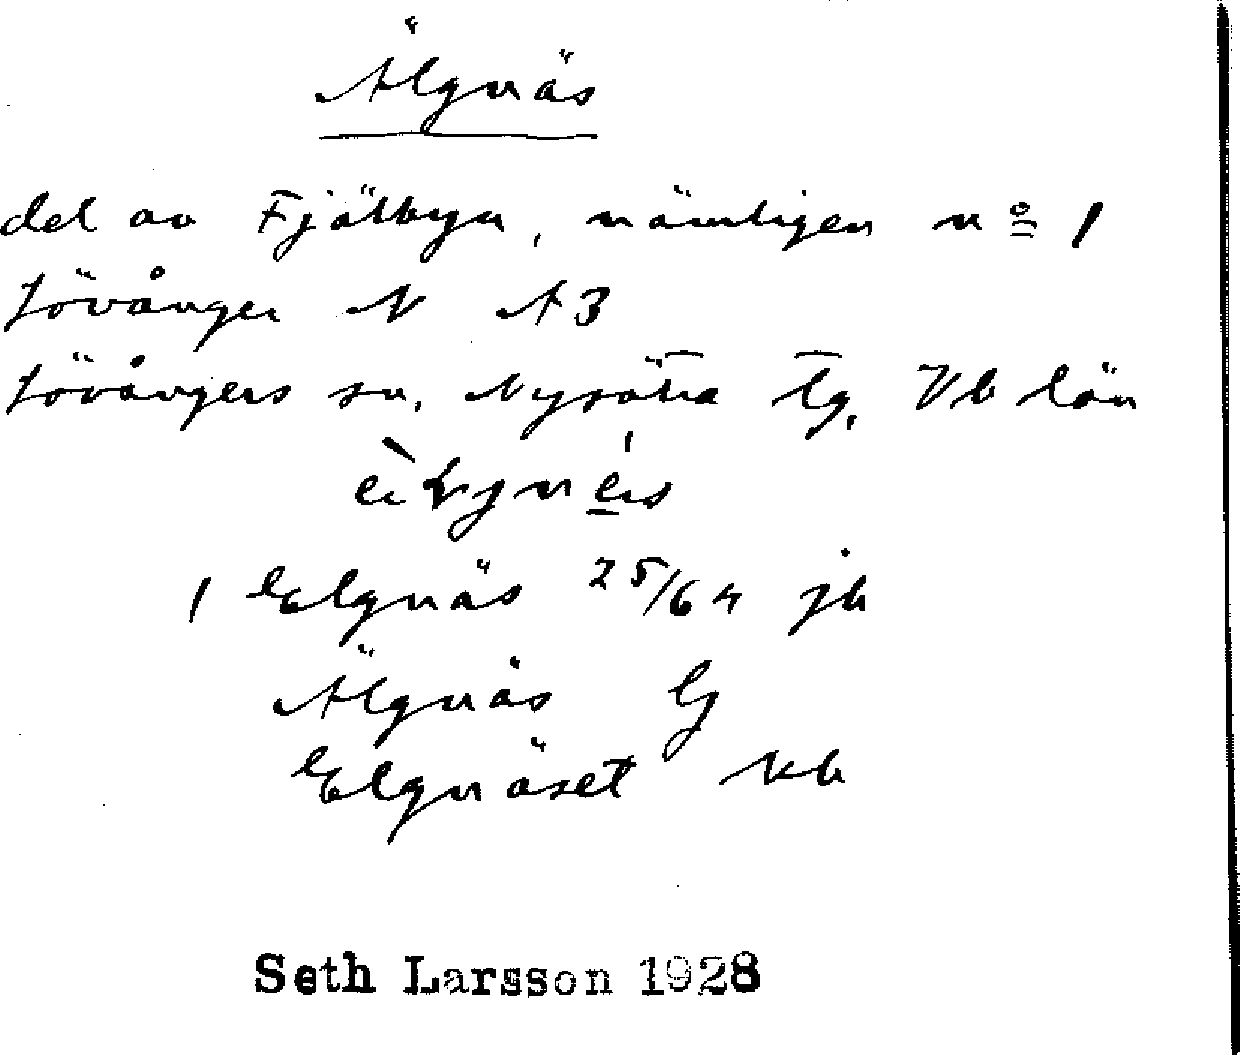 Älgnäs
del av Fjälbyn, nämligen nº 1
Lövånger N A3
Lövångers sn, Nysätra tg, Vb län
1 Elgnäs 25/64 jb
Älgnäs G
Elgnäset kb
Seth Larsson 1928